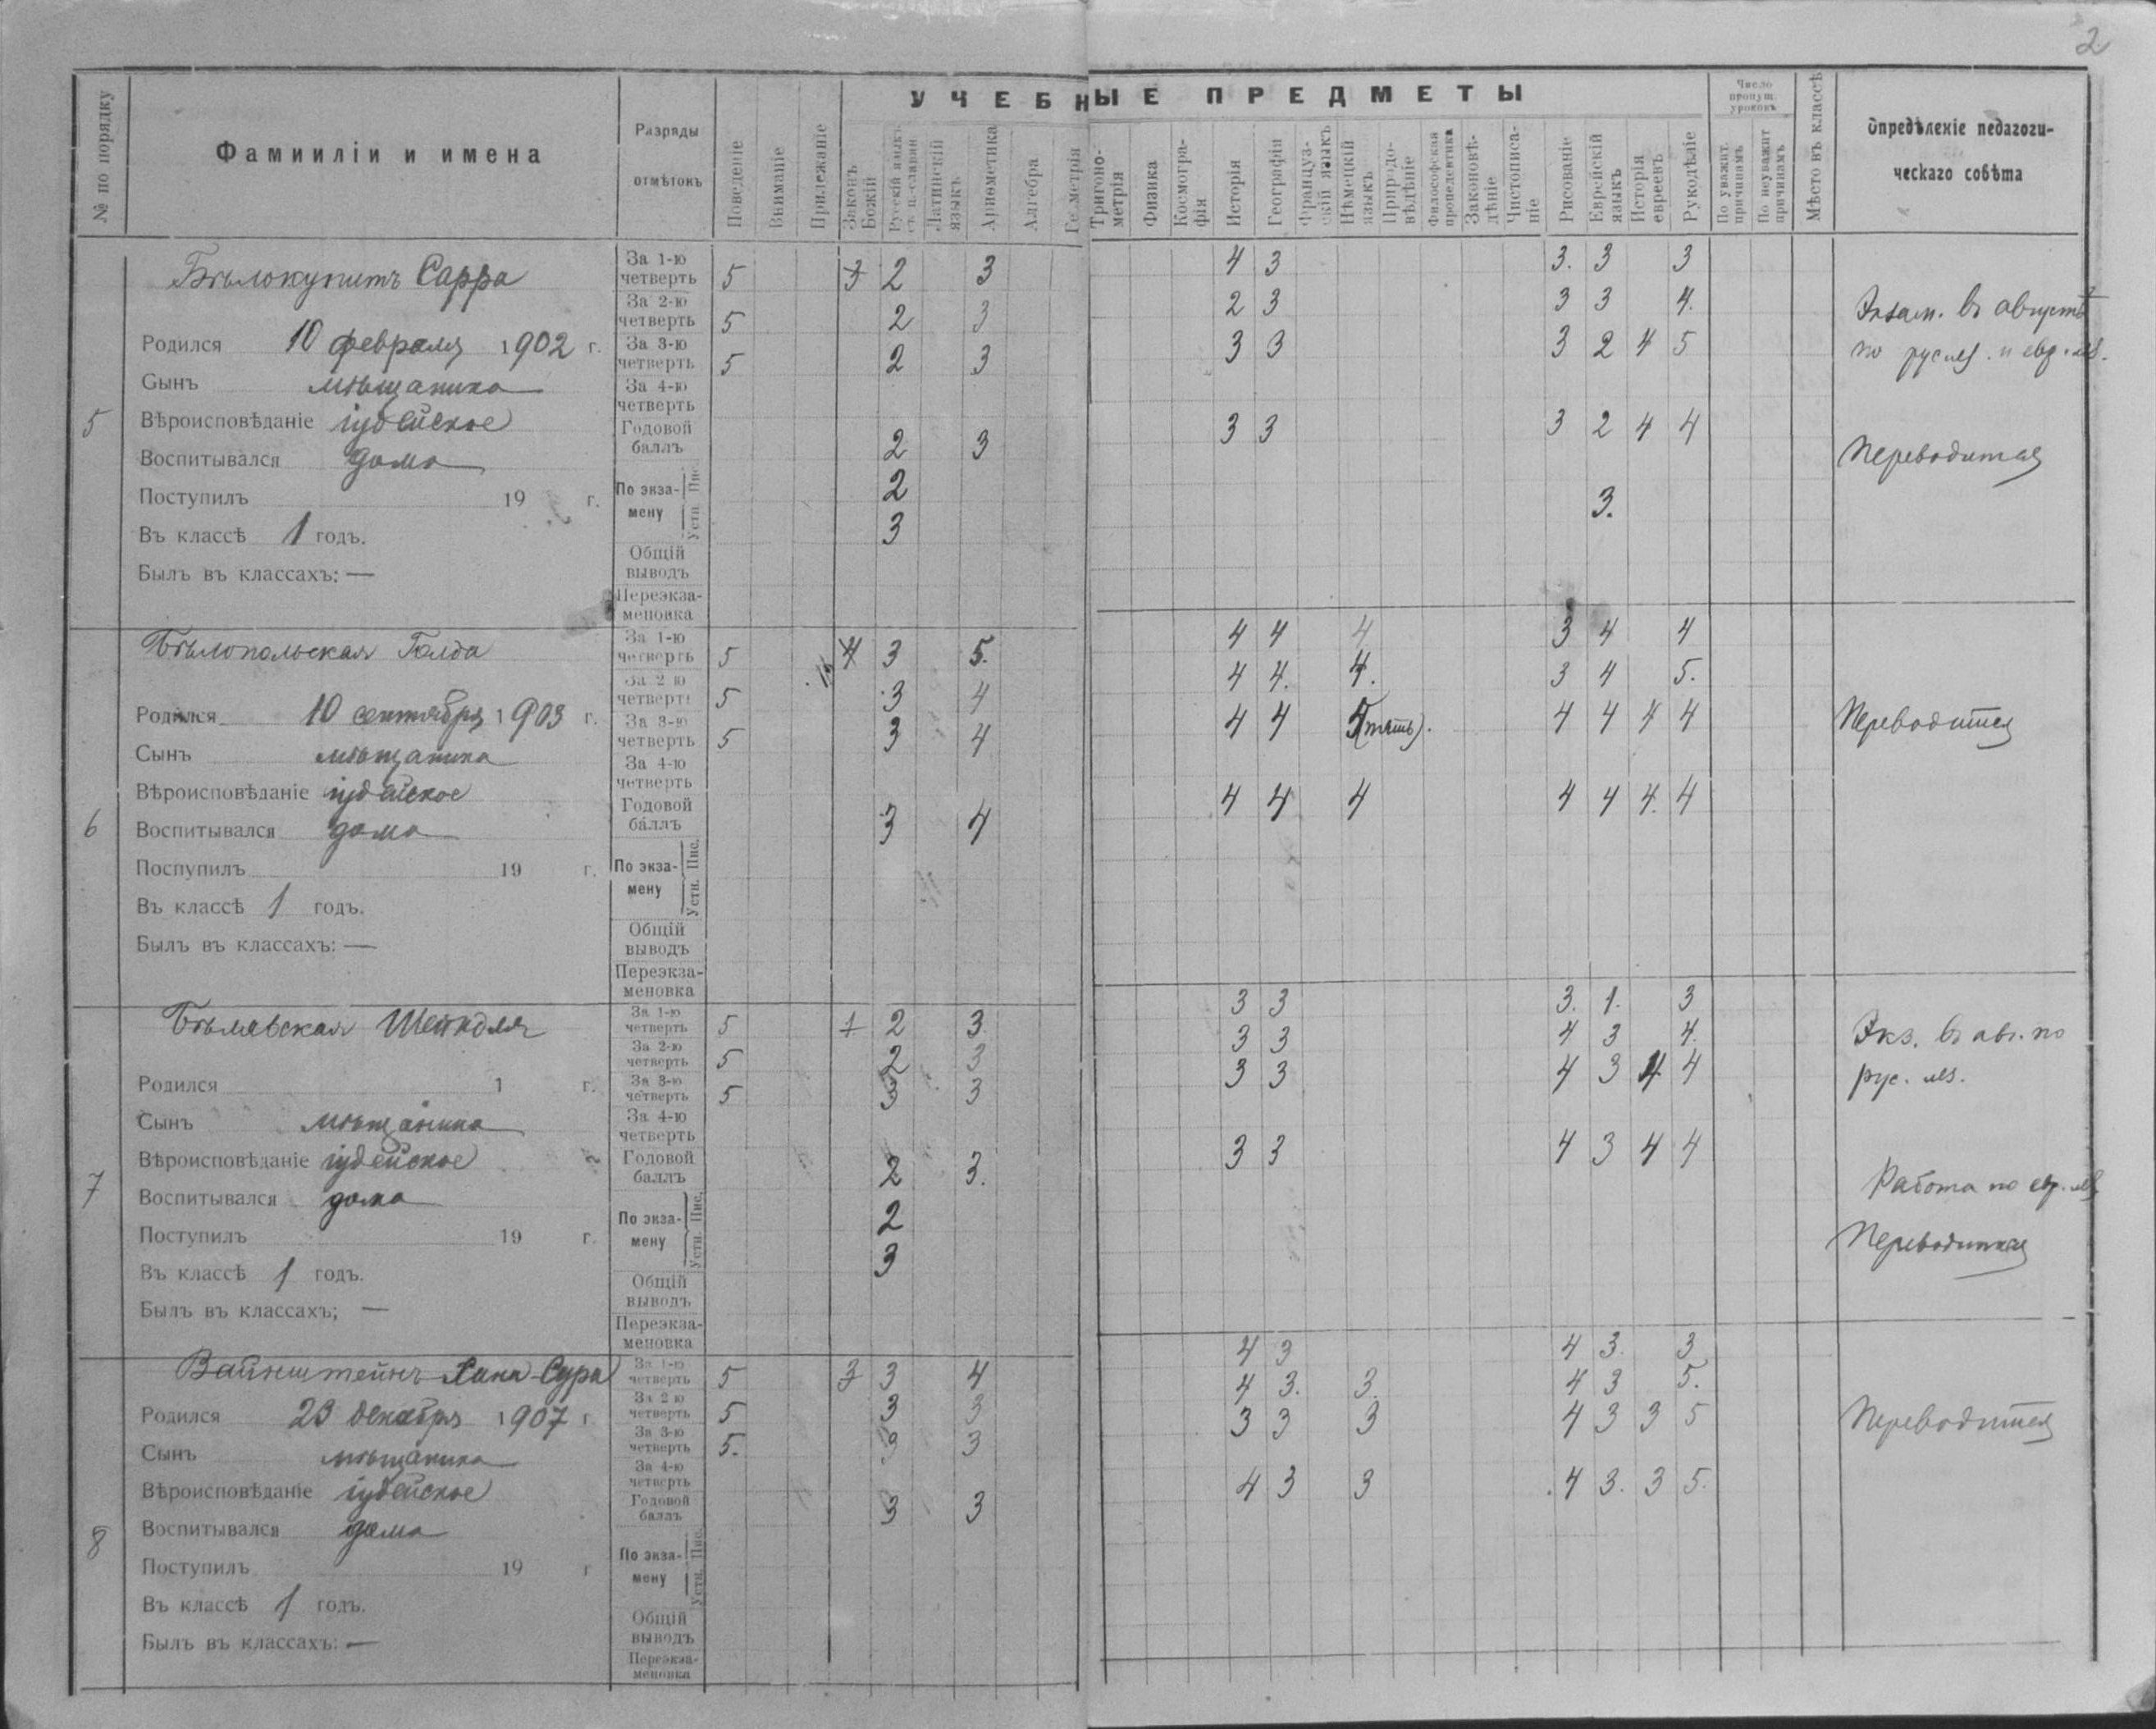 2
УЧЕБНЫЕ ПРЕДМЕТЫ
№ по порядку
Фамииліи и имена
Разряды отмѣтокъ
Поведеніе
Вниманіе
Прилежаніе
Законъ Божій
Русскій языкъ съ ц.-славян
Латинскій языкъ
Ариѳметика
Алгебра
Геометрія
Тригоно-метрія
Физика
Космогра-фія
Исторія
Географія
Француз-скій языкъ
Нѣмецкій языкъ
Природо-вѣдѣніе
Философская пропедевтика
Законовѣ-дѣніе
Чистописа-ніе
Рисованіе
Еврейскій языкъ
Исторія евреевъ
Рукодѣліе
Число пропущ. уроковъ
По уважит. причинамъ
По неуважит причинамъ
Мѣсто въ классѣ
Опредѣленіе педагоги-
ческаго совѣта
5
Бѣлокупитъ Сарра
Родился 10 февраля 1902 г.
Сынъ мѣщанина
Вѣроисповѣданіе іудейское
Воспитывался дома
Поступилъ 19 г.
Въ классѣ 1 годъ.
Былъ въ классахъ: —
За 1-ю четверть 5 3 2 3 4 3 3. 3 3
За 2-ю четверть 5 2 3 2 3 3 3 4.
За 3-ю четверть 5 2 3 3 3 3 2 4 5
За 4-ю четверть
Годовой баллъ 2 3 3 3 3 2 4 4
По экза-мену Пис. 2 3.
Устн. 3
Общій выводъ
Переэкза-меновка
Экзам. въ августѣ
по рус. яз. и евр. яз.
Переводится
6
Бѣлопольская Голда
Родился 10 сентября 1903 г.
Сынъ мѣщанина
Вѣроисповѣданіе іудейское
Воспитывался дома
Поспупилъ 19 г.
Въ классѣ 1 годъ.
Былъ въ классахъ: —
За 1-ю четверть 5 4 3 5. 4 4 4 3 4 4
За 2-ю четверть 5 3 4 4 4. 4. 3 4 5.
За 3-ю четверть 5 3 4 4 4 5(пять). 4 4 4 4
За 4-ю четверть
Годовой баллъ 3 4 4 4 4 4 4 4. 4
По экза-мену Пис.
Устн.
Общій выводъ
Переэкза-меновка
Переводится
7
Бѣлявская Шейндля
Родился 1 г.
Сынъ мѣщанина
Вѣроисповѣданіе іудейское
Воспитывался дома
Поступилъ 19 г.
Въ классѣ 1 годъ.
Былъ въ классахъ; —
За 1-ю четверть 5 1 2 3 3 3 3. 1. 3
За 2-ю четверть 5 2 3 3 3 4 3 4.
За 3-ю четверть 5 3 3 3 3 4 3 4 4
За 4-ю четверть
Годовой баллъ 2 3. 3 3 4 3 4 4
По экза-мену Пис. 2
Устн. 3
Общій выводъ
Переэкза-меновка
Экз. въ авг. по
рус. яз.
Работа по евр. яз
Переводится
8
Вайнштейнъ Хана-Сура
Родился 23 декабря 1907 г
Сынъ мѣщанина
Вѣроисповѣданіе іудейское
Воспитывался дома
Поступилъ 19 г
Въ классѣ 1 годъ.
Былъ въ классахъ: —
За 1-ю четверть 5 3 3 4 4 3 4 3. 3
За 2 ю четверть 5 3 3 4 3. 3. 4 3 5.
За 3-ю четверть 5. 3 3 3 3 3 4 3 3 5
За 4-ю четверть
Годовой баллъ 3 3 4 3 3 4 3. 3 5.
По экза-мену Пис.
Устн.
Общій выводъ
Переэкза-меновка
Переводится